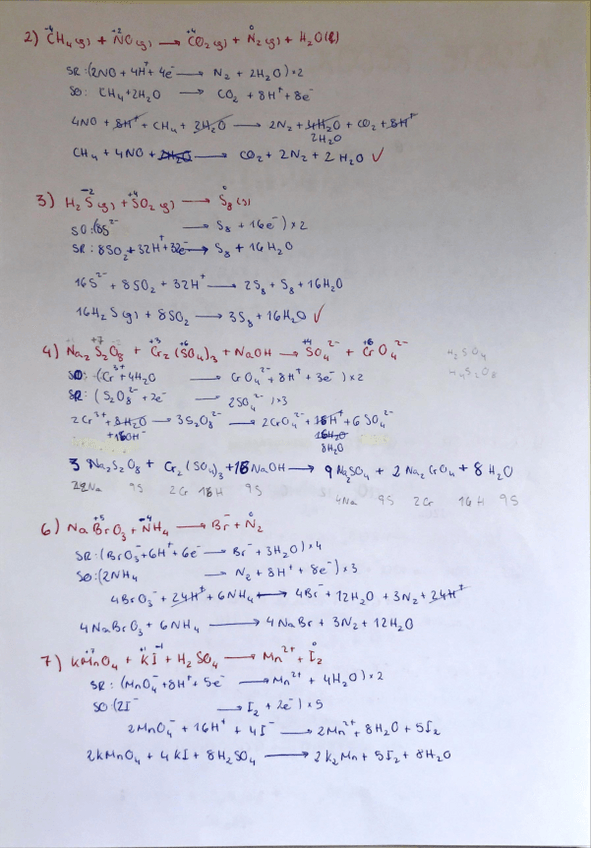 2) C⁻⁴H₄(g) + N⁺²O(g) → C⁺⁴O₂(g) + N⁰₂(g) + H₂O(l)
SR: (2NO + 4H⁺ + 4e⁻ → N₂ + 2H₂O) × 2
SO: CH₄ + 2H₂O → CO₂ + 8H⁺ + 8e⁻
4NO + 8H⁺ + CH₄ + 2H₂O → 2N₂ + 4H₂O + CO₂ + 8H⁺
2H₂O
CH₄ + 4NO + 2H₂O → CO₂ + 2N₂ + 2H₂O ✓
3) H₂S⁻²(g) + S⁺⁴O₂(g) → S⁰₈(s)
SO: (8S²⁻ → S₈ + 16e⁻) × 2
SR: 8SO₂ + 32H⁺ + 32e⁻ → S₈ + 16H₂O
16S²⁻ + 8SO₂ + 32H⁺ → 2S₈ + S₈ + 16H₂O
16H₂S(g) + 8SO₂ → 3S₈ + 16H₂O ✓
4) Na₂S⁺⁷₂O₈ + Cr⁺³₂(S⁺⁶O₄)₃ + NaOH → S⁺⁴O₄²⁻ + Cr⁺⁶O₄²⁻ H₂SO₄
SO: (Cr³⁺ + 4H₂O → CrO₄²⁻ + 8H⁺ + 3e⁻) × 2 H₂S₂O₈
SR: (S₂O₈²⁻ + 2e⁻ → 2SO₄²⁻) × 3
2Cr³⁺ + 8H₂O → 3S₂O₈²⁻ → 2CrO₄²⁻ + 16H⁺ + 6SO₄²⁻
+16OH⁻ 16H₂O
8H₂O
3Na₂S₂O₈ + Cr₂(SO₄)₃ + 16NaOH → 9Na₂SO₄ + 2Na₂CrO₄ + 8H₂O
22Na 9S 2Cr 16H 9S 4Na 9S 2Cr 16H 9S
6) NaBr⁺⁵O₃ + N⁻⁴H₄ → Br⁻ + N⁰₂
SR: (BrO₃⁻ + 6H⁺ + 6e⁻ → Br⁻ + 3H₂O) × 4
SO: (2NH₄ → N₂ + 8H⁺ + 8e⁻) × 3
4BrO₃⁻ + 24H⁺ + 6NH₄ ↔ 4Br⁻ + 12H₂O + 3N₂ + 24H⁺
4NaBrO₃ + 6NH₄ → 4NaBr + 3N₂ + 12H₂O
7) KMn⁺⁷O₄ + K⁺¹I⁻¹ + H₂SO₄ → Mn²⁺ + I⁰₂
SR: (MnO₄⁻ + 8H⁺ + 5e⁻ → Mn²⁺ + 4H₂O) × 2
SO: (2I⁻ → I₂ + 2e⁻) × 5
2MnO₄⁻ + 16H⁺ + 4I⁻ → 2Mn²⁺ + 8H₂O + 5I₂
2KMnO₄ + 4KI + 8H₂SO₄ → 2K₂Mn + 5I₂ + 8H₂O